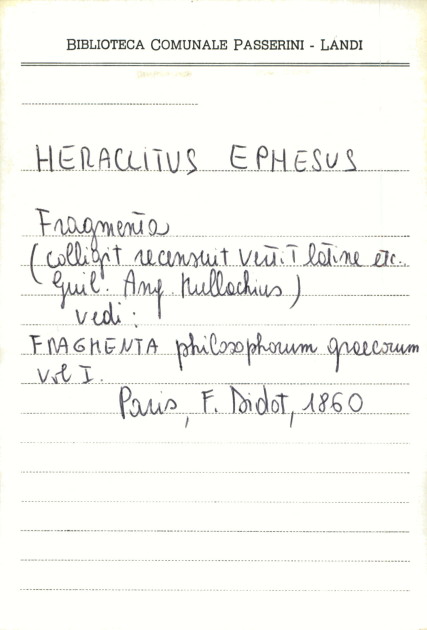 BIBLIOTECA COMUNALE PASSERINI - LANDI
HERACLITUS EPHESUS
Fragmenta
(collegit recensuit vertit latine etc.
Guil. Ang. Mullachius)
vedi:
FRAGMENTA philosophorum graecorum
vol I.
Paris, F. Didot, 1860